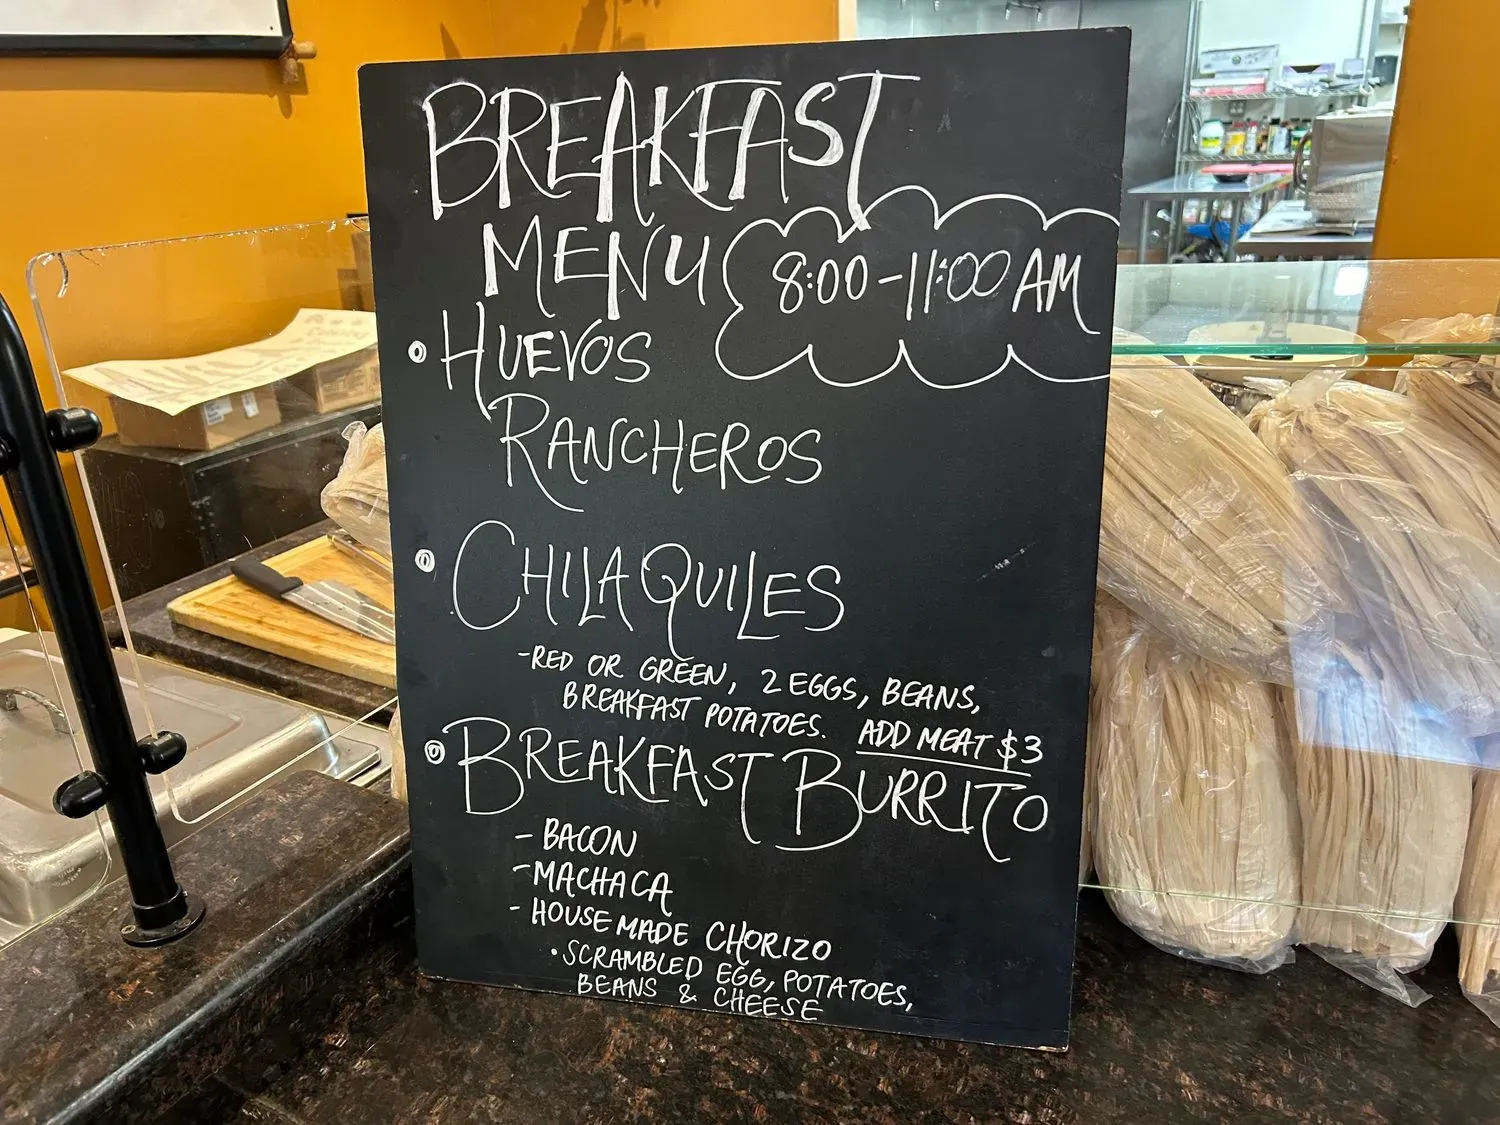 BREAKFAST
MENU 8:00-11:00 AM
• HUEVOS
RANCHEROS
• CHILAQUILES
-RED OR GREEN, 2 EGGS, BEANS,
BREAKFAST POTATOES. ADD MEAT $3
• BREAKFAST BURRITO
- BACON
-MACHACA
- HOUSEMADE CHORIZO
• SCRAMBLED EGG, POTATOES,
BEANS & CHEESE